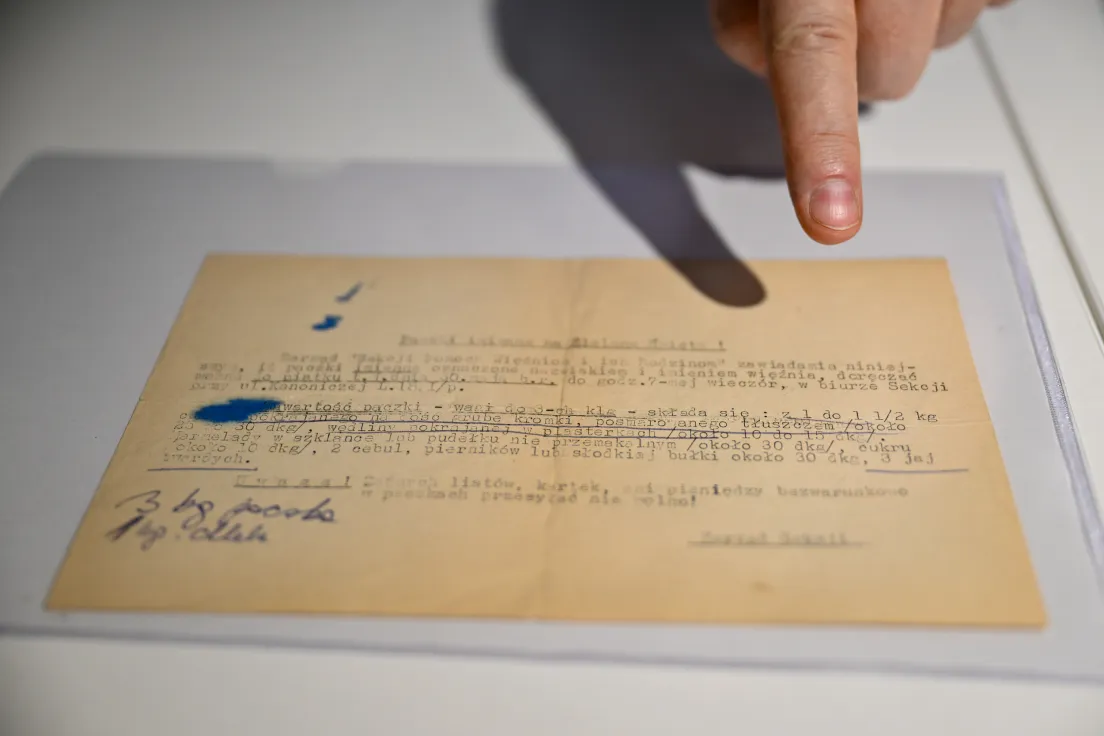 Paczki imienne na Zielone Święta !
Zarząd "Sekcji Pomocy Więźniom i ich Rodzinom" zawiadamia niniej-
szym, iż paczki imienne oznaczone nazwiskiem i imieniem więźnia, doręczać
do godz.7-mej wieczór, w biurze Sekcji
przy ul.Kanoniczej L.
Zawartość paczki - wagi do 3-ch klg - składa się : z 1 do 1 1/2 kg
pokrajanego na dość grube kromki, posmarowanego tłuszczem /około
30 dkg/, wędliny pokrajanej w plasterkach /około 10 do 15 dkg/,
marmelady w szklance lub pudełku nie przemakalnym /około 30 dkg/, cukru
około 10 dkg/, 2 cebul, pierników lub słodkiej bułki około 30 dkg, 3 jaj
twardych.
U w a g a ! Żadnych listów, kartek, ani pieniędzy bezwarunkowo
w paczkach przesyłać nie wolno!
3 kg paczka
1 kg. chleb
Zarząd Sekcji